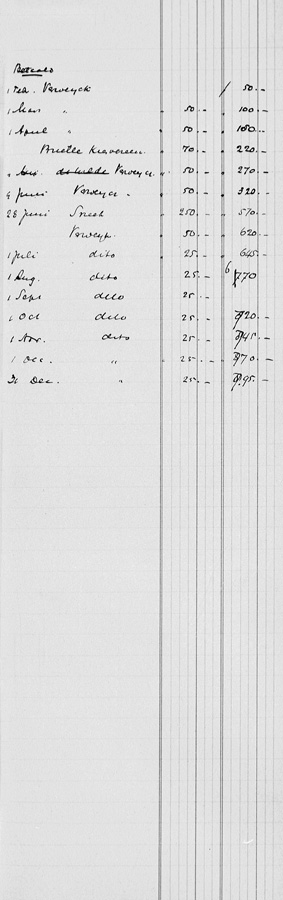 Betaald
1 Feb. Verweyck / 50.—
1 Maart " " 50.— " 100.—
1 April " " 50.— " 150.—
Brieelle " 70.— " 220.—
" 50.— " 270.—
9 Juni Verweyck " " 50.— " 320.—
28 Juni Smit " 250.— " 570.—
Verweyck. " 50.— " 620.—
1 Juli dito " 25.— " 645.—
1 Aug. dito " 25.— 670
1 Sept dito " 25.—
1 Oct dito " 25.— 720.—
1 Nov. dito " 25.— 745.—
1 Dec. " " 25.— 770.—
31 Dec. " 25.— 795.—